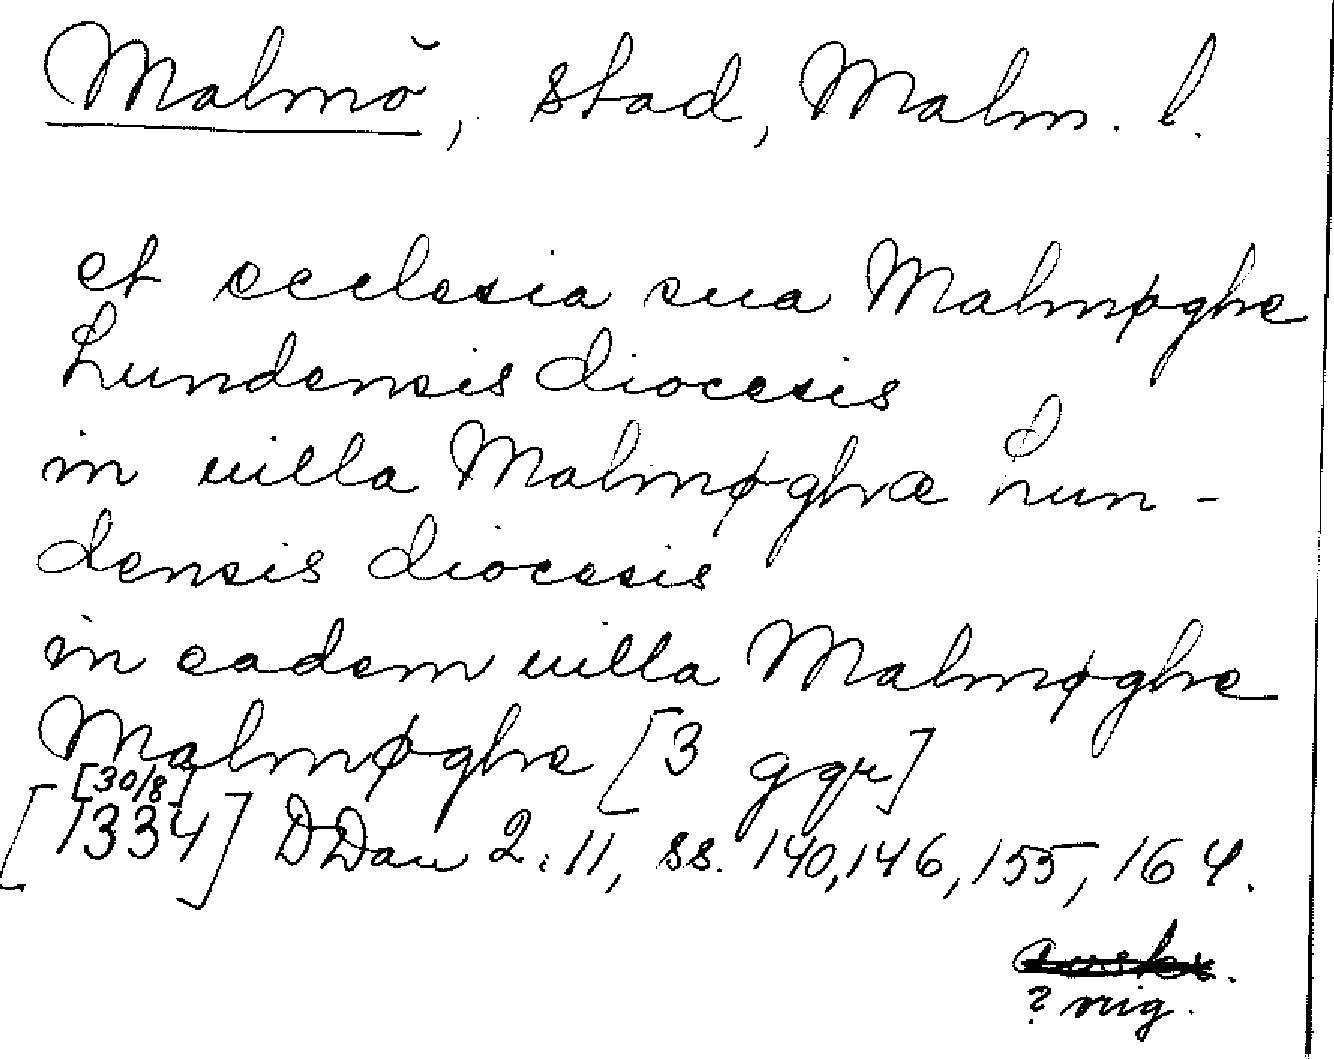 Malmö, stad, Malm. l.
et ecclesia sua Malmøghe
Lundensis diocesis
in uilla Malmøghæ Lun-
densis diocesis
in eadem uilla Malmøghe
Malmøghe [3 ggr]
[30/8]
[1334] DDan 2:11, ss. 140, 146, 155, 164.
? mig.